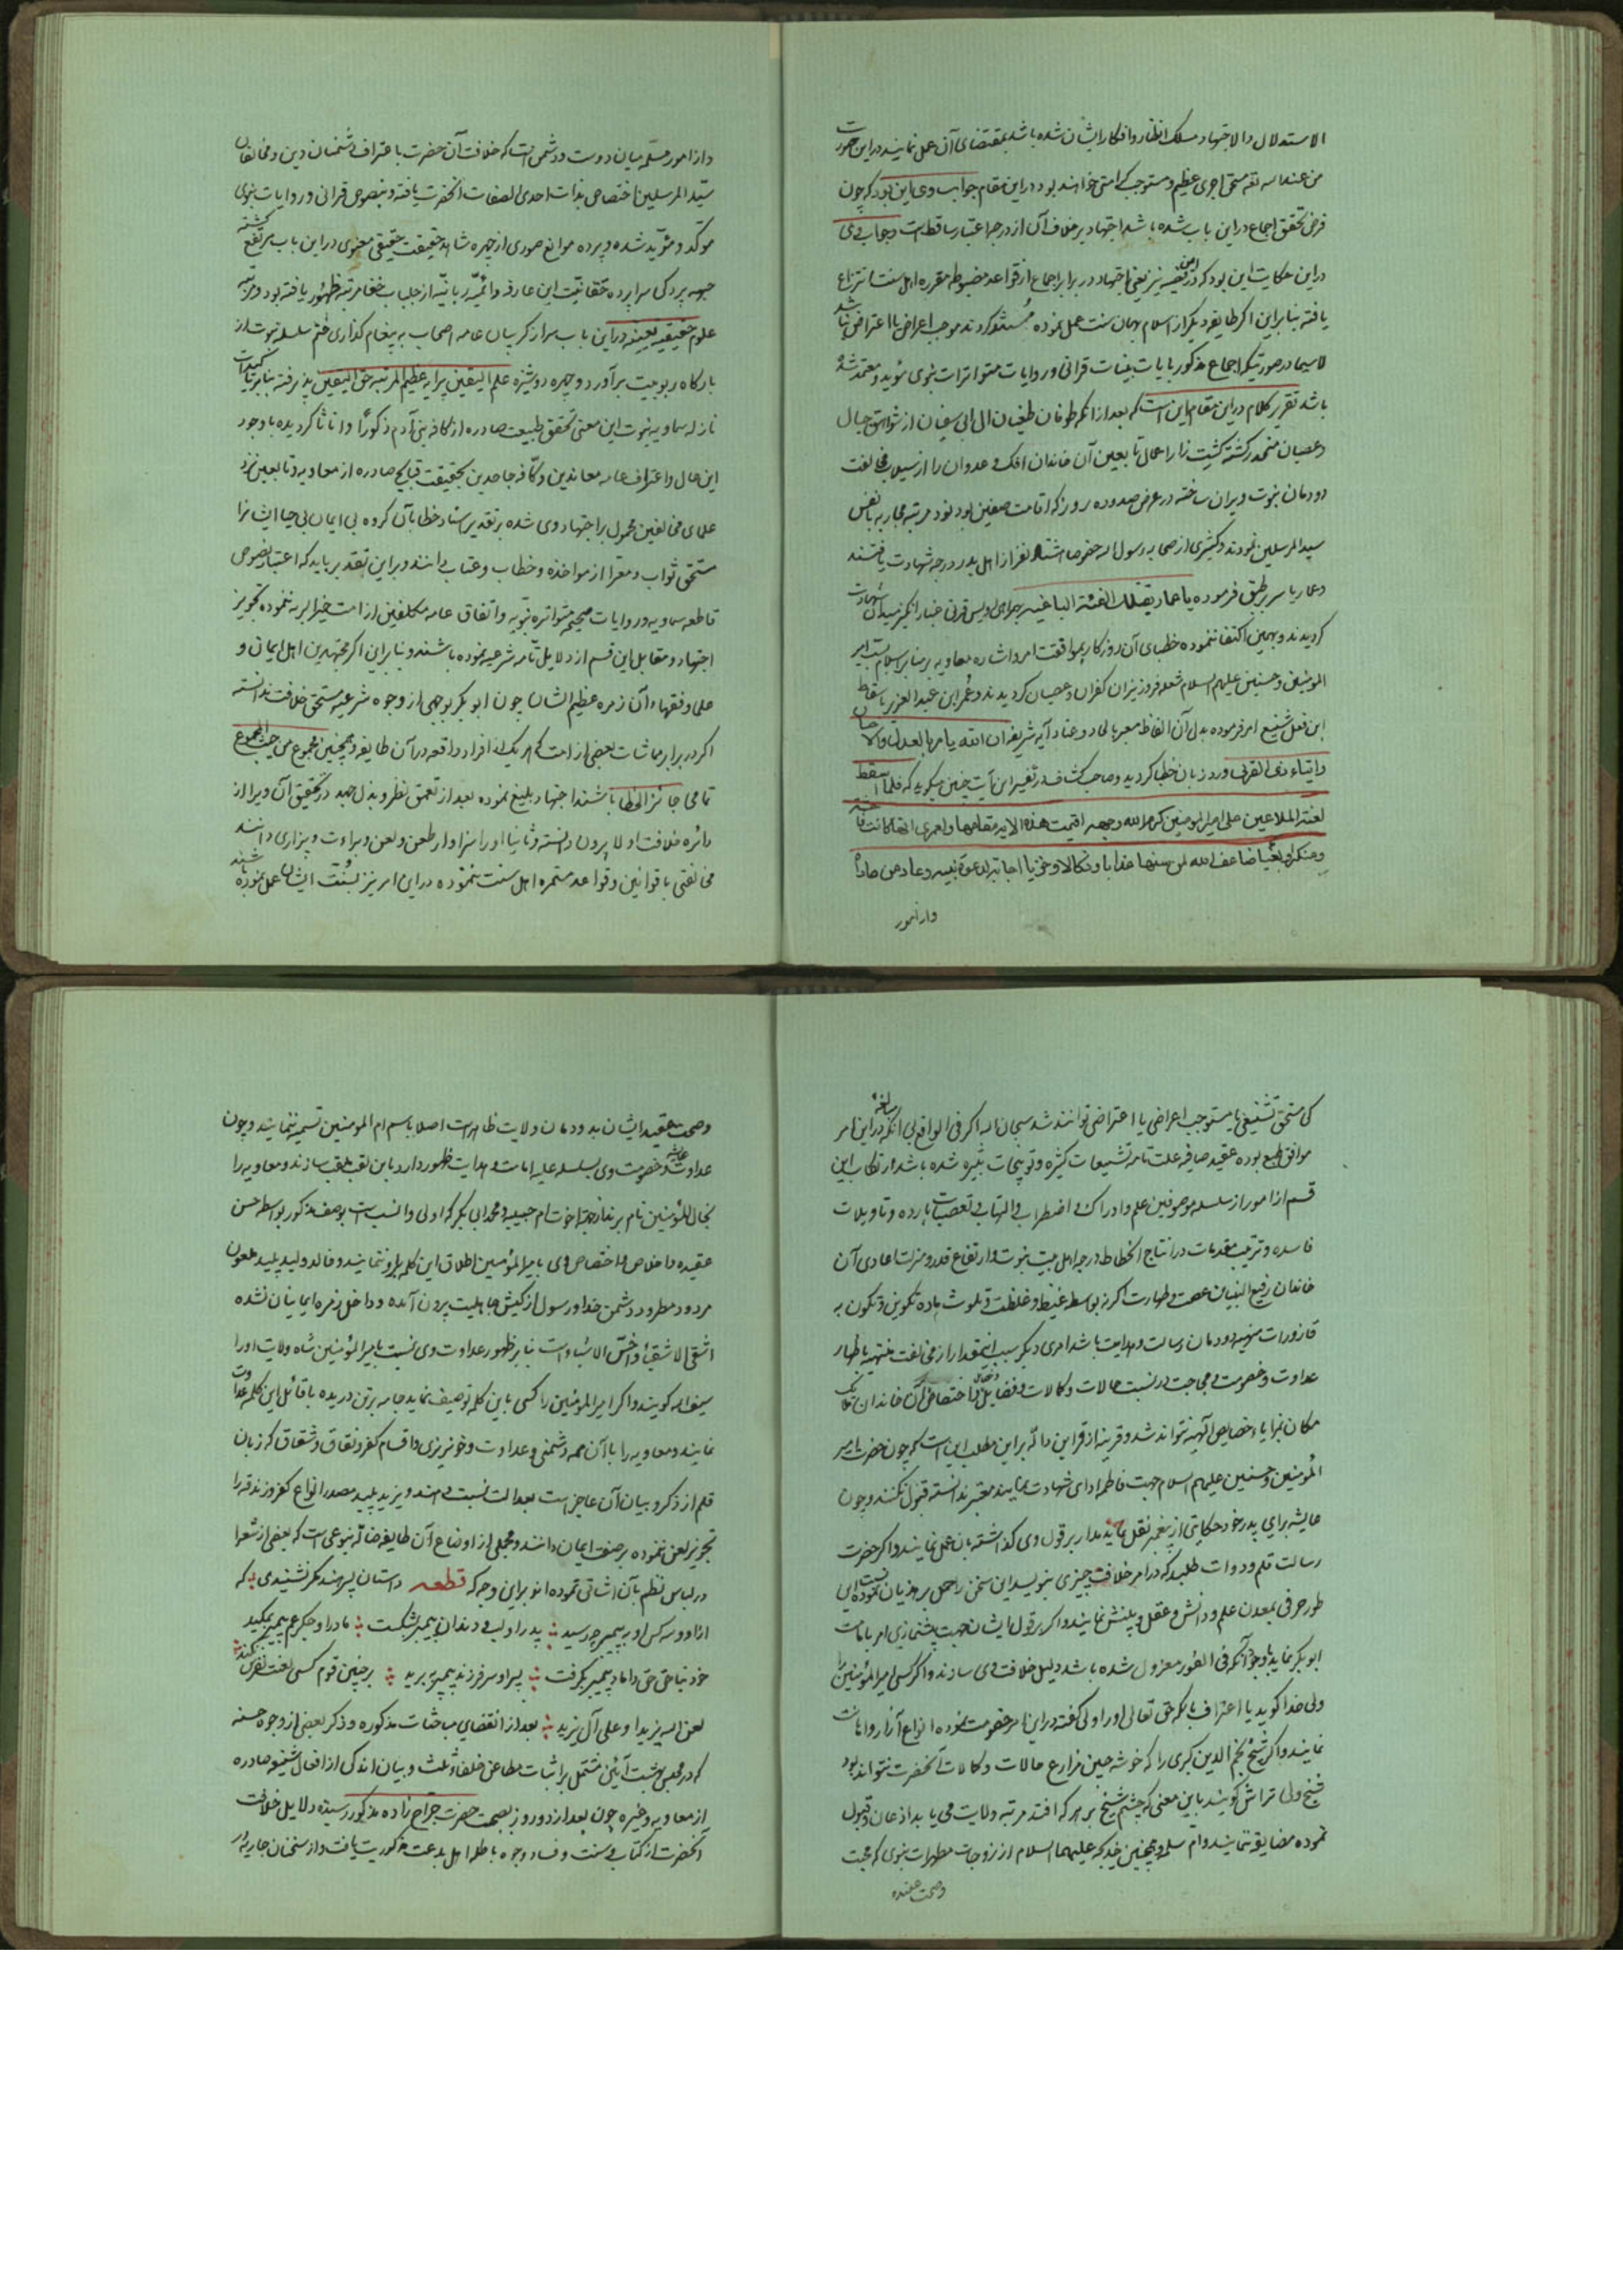 الاستدلال والاجتهاد مسلک انظار وافکار ایشان شده باشد بمقتضای آن عمل نمایند در این صورت
من عند الله مستحق اجری عظیم و مستوجب کرامتی خواهند بود در این مقام جواب وی این بود که چون
فرض تحقق اجماع در این باب شده باشد اجتهاد بر خلاف آن از درجه اعتبار ساقط است و جواب وی
در این حکایت این بود که در این قضیه نیز یعنی اجتهاد در برابر اجماع از قواعد مضبوطه مقرره اهل سنت انتزاع
یافته بنابراین اگر طایفه دیگر از اسلام بهمان سنت عمل نموده کردند موجب اعراض یا اعتراض نباشد
لاسیما در صورتیکه اجماع مذکور بآیات بینات قرانی وروایات متواترات نبوی مؤید و معتمد شده
باشد تقریر کلام در این مقام این است که بعد از آنکه طوفان طغیان ال ابی سفیان از شواهق جبال
وعصیان منحدر گشته کشت زار اعمال تابعین آن خاندان افک و عدوان را از سیلاب مخالفت
دودمان نبوت ویران ساخته در عرض صد و ده روز که اقامت صفین بود نود مرتبه محاربه با نفس
سید المرسلین نمودند و کثیری از صحابه رسول الله خصوصا هشتاد نفر از اهل بدر درجه شهادت یافتند
وعمار یاسر بر طبق فرموده یا عمار یقتلک الفئة الباغیه بهمراهی اویس قرنی شهادت
گردیدند و بهمین اکتفا ننموده خطبای آن روزگار بموافقت امر واشاره معاویه بر منابر اسلام بسب امیر
المؤمنین وحسنین علیهم السلام شعله فروز نیران کفران وعصیان گردیدند و عمر ابن عبد العزیز باسقاط
این فعل شنیع امر فرموده بدل آن الفاظ آیه شریفه ان الله یامر بالعدل والاحسان
وایتاء ذی القربی ورد زبان خطبا گردید وصاحب کشاف در تفسیر این آیت چنین میگوید که فلما اسقط
لعنة الملاعین علی امیر المومنین کرم الله وجهه اقیمت هذه الایة مقامها ولعمری انها کانت فاحشة
ومنکرا وبغیا ضاعف الله لمن سنها عذابا ونکالا وخزیا اجابة لدعوة نبیه وعاد من عاداه
واز امور
واز امور مسلمه میان دوست ودشمن است که خلافت آن حضرت باعتراف دشمنان دین ومخالفان
سید المرسلین اختصاص بذات احدی الصفات آنحضرت یافته و بنصوص قرانی وروایات نبوی
موکد و مؤید شده و پرده موانع صوری از چهره شاهد حقیقت حقیقی معنوی در این باب مرتفع گشته
چهره پردگی سراپرده حقانیت این عارفه وائمه ربانیه از جلباب خفا مرتبه ظهور یافته بود و مرتبه
علوم حقیقیه یقینیه در این باب سر از گریبان عامه اصحاب به پیغام گذاری ختم سلسله نبوت از
بارگاه ربوبیت برآورد و چهره دوشیزه علم الیقین پیرایه عظیم المرتبه حق الیقین پذیرفته بنابر تاکیدات
نازله سماویه نبوت این معنی تحقق طبیعت صادره از کافه بنی آدم ذکورا واناثا گردیده باوجود
این حال واعتراف عامه معاندین وکافه جاحدین بحقیقت قبایح صادره از معاویه وتابعین نزد
علمای مخالفین محمول بر اجتهاد وی شده بر تقدیر اسناد خطا بآن گروه بی ایمان بی حیا ایشانرا
مستحق ثواب ومعرا از مواخذه وخطاب وعتاب دانند وبر این تقدیر باید که اعتبار نصوص
قاطعه سماویه وروایات صحیحه متواتره نبویه واتفاق عامه مکلفین از امت خیر البریه ننموده تجویز
اجتهاد و مقابل این قسم از دلایل تامه شرعیه نموده باشند و بنابراین اگر مجتهدین اهل ایمان و
علما وفقهاء آن زمره عظیم الشان چون ابوبکر بوجهی از وجوه شرعیه مستحق خلافت ندانسته
اگر در برابر مماشات بعضی از امت که هر یک از افراد واقعه در آن طایفه وهمچنین مجموع من حیث المجموع
تمامی جائز الخطا باشند اجتهاد بلیغ نموده بعد از تعمق نظر و بذل جهد در تحقیق آن ویرا از
دائره خلافت اولا بیرون دانسته وثانیا اورا سزاوار طعن ولعن وبراءت وبیزاری دانند
مخالفتی با قوانین وقواعد مستمره اهل سنت ننموده در این امر نیز بسنت ایشان عمل نموده باشند
کی مستحق تشنیعی یا مستوجب اعراضی یا اعتراضی توانند شد سبحان الله اگر فی الواقع بی آنکه مبالغه در این امر
موافق طبع بوده عقیده صافیه علت تامه تشنیعات کثیره وتوبیخات شده باشد ارتکاب این
قسم از امور از سلسله موصوفین علم وادراک واضطراب والتهاب تعصبات بارده وتاویلات
فاسده وترتیب مقدمات در انتاج انحطاط درجه اهل بیت نبوت وارتفاع قدر ومنزلت اعادی آن
خاندان رفیع البنیان عصمت وطهارت اگر نه بواسطه غیظ وغلظت وتلوث ماده تکوین وتکون به
قاذورات منهیه دودمان رسالت وهدایت باشد امری دیگر سبب اینمقدار از مخالفت منتهیه باظهار
عداوت وخصومت حالات وکمالات وفضایل اختصاص آن خاندان ملائک
مکان بمزایاء خصایص الهیه نتواند شد وقرینه از قراین داله بر این مطلب این است که چون حضرت امیر
المؤمنین وحسنین علیهم السلام جهت فاطمه ادای شهادت نمایند معتبر ندانسته قبول نکنند وچون
عایشه برای پدر خود حکایتی از پیغمبر نقل نماید مدار بر قول وی گذاشته بآن عمل نمایند واگر حضرت
رسالت قلم ودوات طلبد که در امر خلافت چیزی بنویسد این سخن را حمل بر هذیان نموده نسبت این
طور حرفی بمعدن علم ودانش وعقل وبینش نمایند واگر بر قول ایشان جهت پیشنمازی امر بامامت
ابوبکر نماید باوجود آنکه فی الفور معزول شده باشد دلیل خلافت وی سازند واگر کسی امیر المؤمنین را
ولی خدا گوید یا اعتراف بانکه حق تعالی اورا ولی گفته در این امر خصومت نموده انواع آزار واهانت
نمایند واگر شیخ نجم الدین کبری را که خوشه چین مزارع حالات وکمالات آنحضرت نتواند بود
شیخ ولی تراش گویند باین معنی که چشم شیخ بر هر که افتد مرتبه ولایت می یابد اذعان وقبول
نموده مضایقه ننمایند وام سلمه وهمچنین خدیجه علیهما السلام از زوجات مطهرات نبوی که محبت
وصحت عقیده
وصحت عقیده ایشان بدودمان ولایت ظاهر است اصلا باسم ام المومنین تسمیه ننمایند وچون
عداوت عایشه وخصومت وی بسلسله علیه امامت وهدایت ظهور دارد باین لقب ملقب سازند ومعاویه را
بخال المؤمنین نام برند از جهت اخوت ام حبیبه ومحمد ابی بکر که اولی وانسب است بوصف مذکور بواسطه حسن
عقیده واخلاص واختصاص وی بامیر المؤمنین اطلاق این کلمه بر او ننمایند وخالد ولید پلید ملعون
مردود مطرود دشمن خدا ورسول از کیش جاهلیت بیرون آمده وداخل زمره ایمانیان نشده
اشقی الاشقیاء واخس الاشیاء است بنابر ظهور عداوت وی نسبت بامیر المؤمنین شاه ولایت اورا
سیف الله گویند واگر امیر المؤمنین را کسی باین کلمه توصیف نماید جامه بر تن دریده با قائل این کلمه عداوت
نمایند ومعاویه را با آن همه دشمنی وعداوت وخونریزی واقسام کفر ونفاق وشقاق که زبان
قلم از ذکر وبیان آن عاجز است بعدالت نسبت دهند ویزید پلید مصدر انواع کفر وزندقه را
تجویز لعن ننموده بر صفت ایمان دانند ومجملی از اوضاع آن طایفه ضاله بنوعی است که بعضی از شعرا
در لباس نظم بآن اشاتی نموده اند بر این وجه که قطعه داستان پسر هند مگر نشنیدی که
از او وسه کس او به پیمبر چه رسید پدر او لب ودندان پیمبر بشکست مادر او جگر عم پیمبر بمکید
خود بناحق حق داماد پیمبر بگرفت پسر او سر فرزند پیمبر ببرید بر چنین قوم کسی لعنت ونفرین نکند
لعن الله یزیدا وعلی آل یزید بعد از انقضای مباحثات مذکوره وذکر بعضی از وجوه حسنه
که در مجلس بهشت آیین مشتمل بر اثبات مطاعن خلفاء ثلث وبیان اندکی از افعال شنیعه صادره
از معاویه وغیره چون بعد از دو روز بصحبت حضرت جراح زاده مذکور رسیده دلایل خلافت
آنحضرت از کتاب وسنت وفساد وجوه باطله اهل بدعت مذکوریت یافت واز سخنان جاریه در